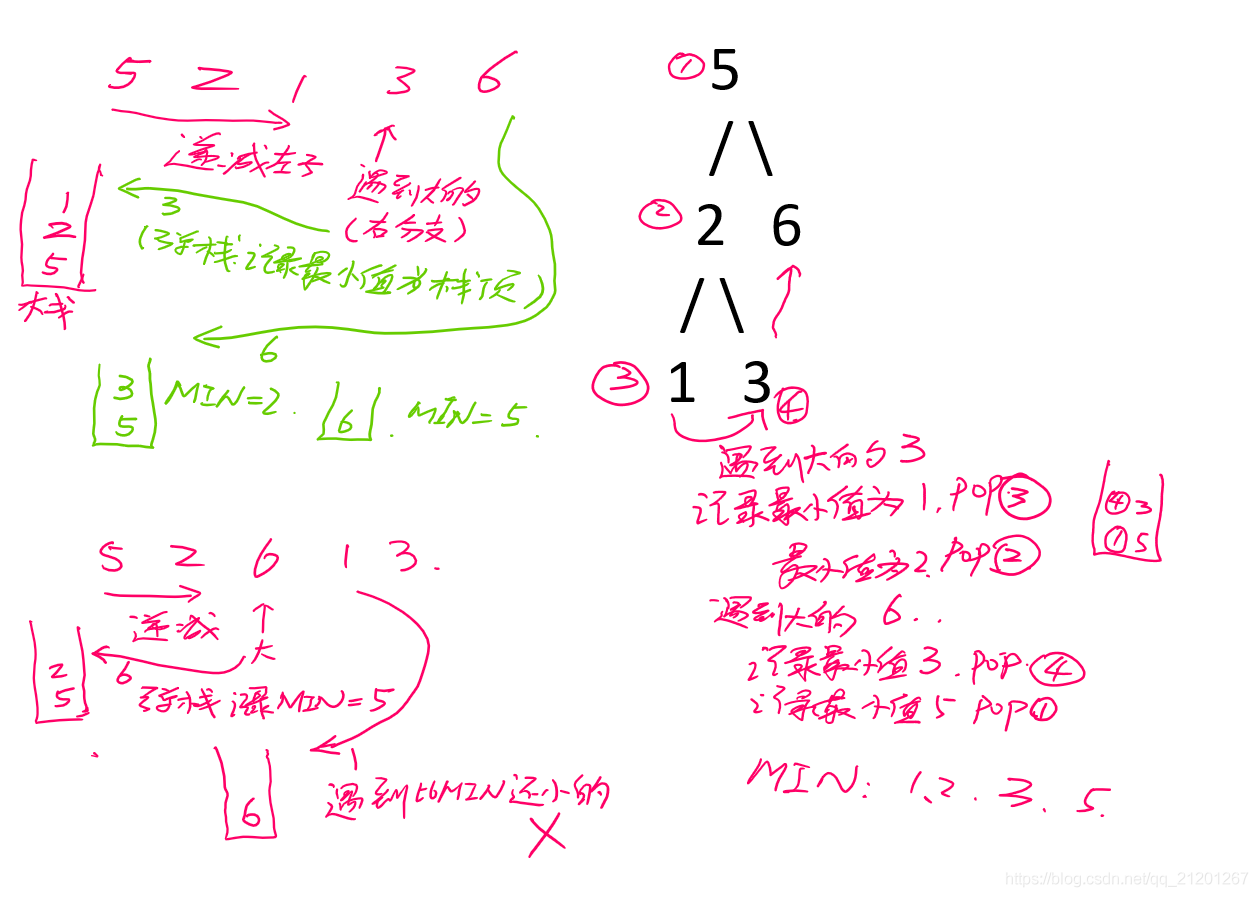 5 2 1 3 6
递减左子
遇到大的
(右分支)
3
(弹栈记录最小值为栈顶)
1
2
5
大栈
6
3
5
MIN=2.
6
. MIN=5.
5 2 6 1 3.
递减
大
2
5
6
弹栈记录MIN=5
6
1
遇到比MIN还小的
X
① 5
② 2 6
③ 1 3 ④
遇到大的为3
记录最小值为1,POP③
最小值为2,POP②
遇到大的 6..
记录最小值3.POP.④
记录最小值5 POP①
④3
①5
MIN: 1,2.3.5.
https://blog.csdn.net/qq_21201267